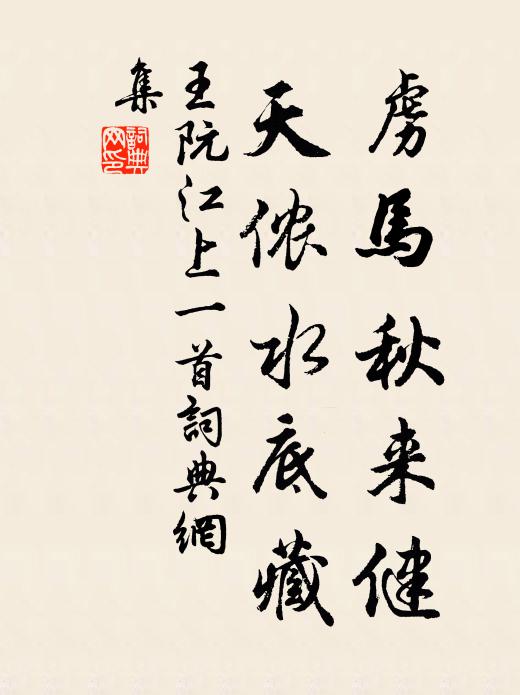 虏馬秋来健
天侬水底藏
王阮江上一首詞典網
集
詞典网印